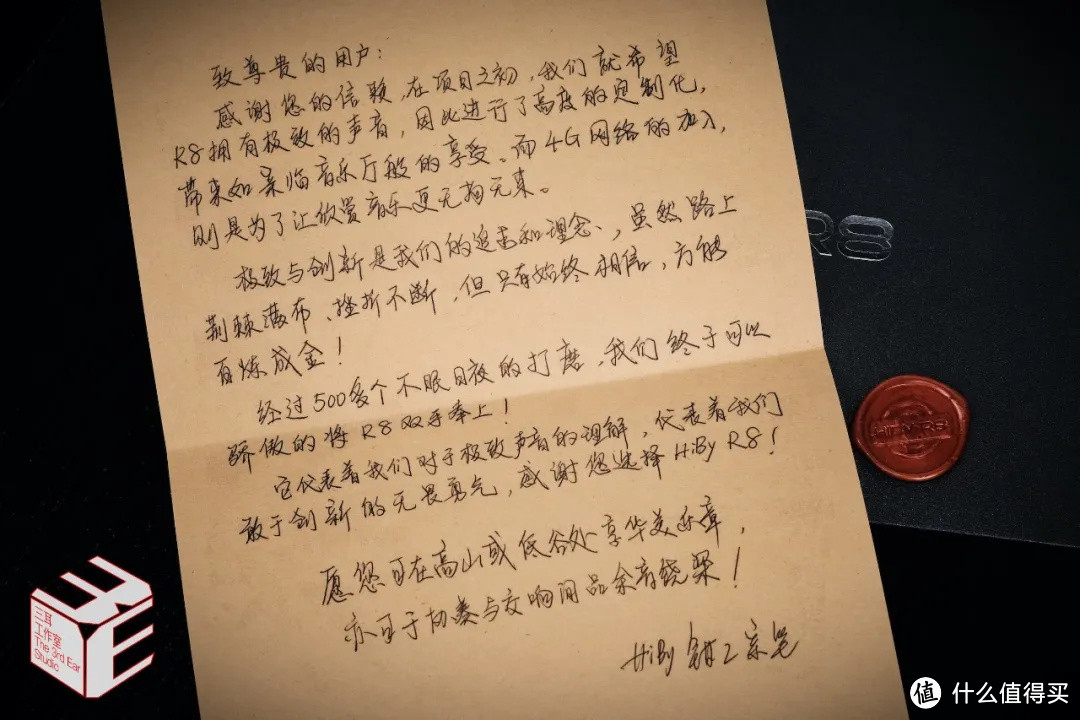 致尊贵的用户：
感谢您的信赖，在项目之初，我们就希望
R8拥有极致的声音，因此进行了高度的定制化，
带来如亲临音乐厅般的享受。而4G网络的加入，
则是为了让欣赏音乐更无拘无束。
极致与创新是我们的追求和理念，虽然路上
荆棘满布、挫折不断，但只有始终相信，方能
百炼成金！
经过500多个不眠日夜的打磨，我们终于可以
骄傲的将R8双手奉上！
它代表着我们对于极致声音的理解，代表着我们
敢于创新的无畏勇气，感谢您选择HiBy R8！
愿您可在高山或低谷处享华美乐章，
亦可于协奏与交响间品余音绕梁！
HiBy
R8
三耳
工作室
The 3rd Ear
Studio
值 什么值得买